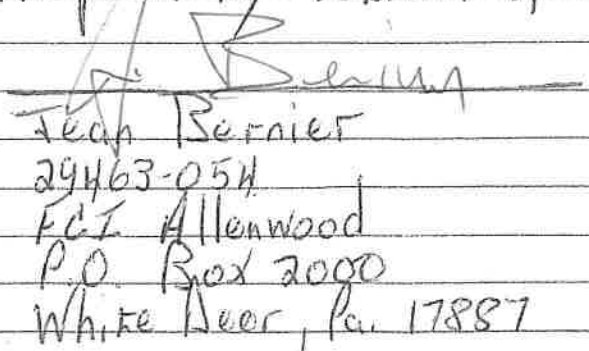 Bernier
Jean Bernier
29463-054
FCI Allenwood
P.O. Box 2000
White Deer, Pa. 17887